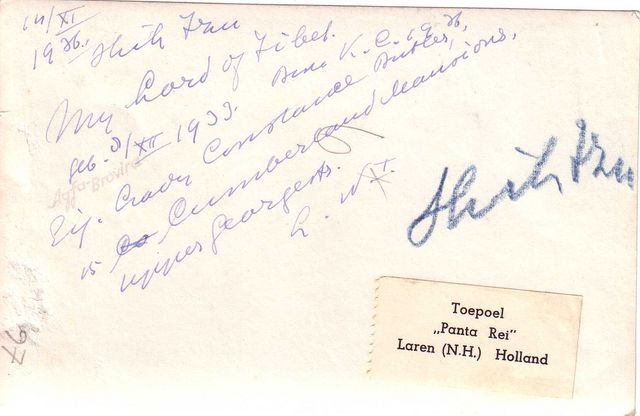 14/XI
1936. Shih Tzu
My Lord of Tibet.
geb. 3/XII 1933. K.C. 1936,
Eig. Constance Butler,
15 Cumberland Mansions,
upper George str.
L. W1.
Agfa-Brovira
Shih Tzu
Toepoel
„Panta Rei"
Laren (N.H.) Holland
97